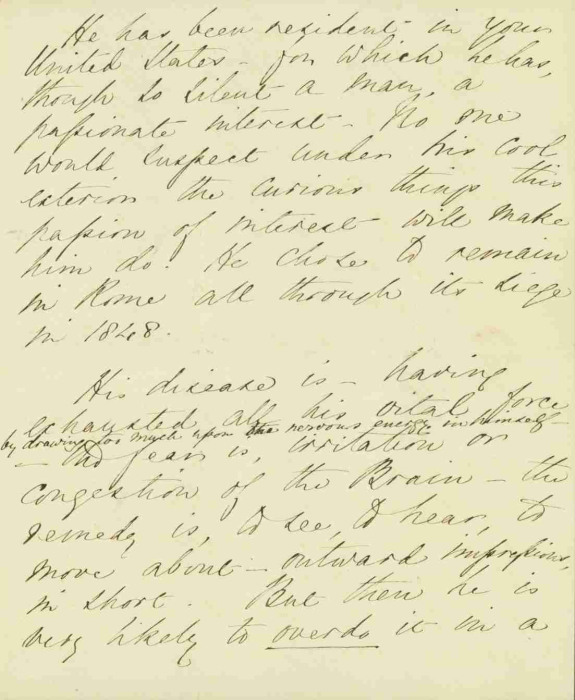 He has been resident in your
United States - for which he has,
though so silent a man, a
passionate interest - No one
would suspect under his cool
exterior the curious things this
passion of interest will make
him do. He chose to remain
in Rome all through its siege
in 1848.
His disease is - having
exhausted all his vital force
by drawing too much upon the nervous energy in himself -
- the fear is, irritation or
congestion of the Brain - the
remedy is, to see, to hear, to
move about - outward impressions,
in short. But then he is
very likely to overdo it in a